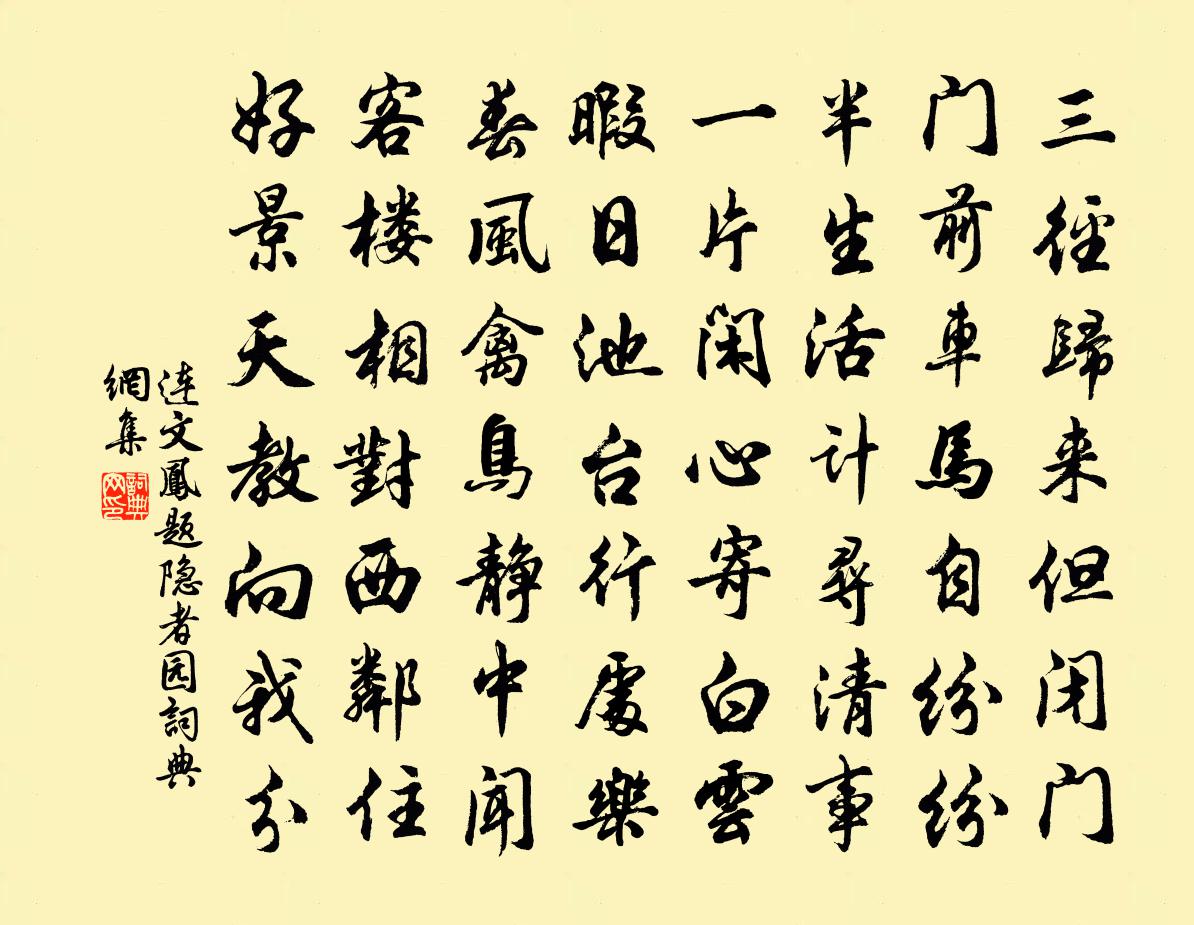 三徑歸来但闭门
门前車馬自紛紛
半生活计尋清事
一片闲心寄白雲
暇日池台行處樂
春風禽鳥静中闻
客楼相對西鄰住
好景天教向我分
連文鳳题隐者园詞典
網集
詞典
网印